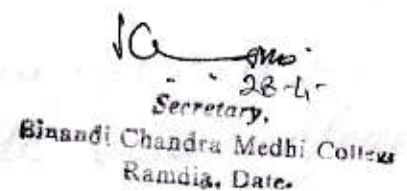 28-4-
Secretary,
Binandi Chandra Medhi College
Ramdia, Date.